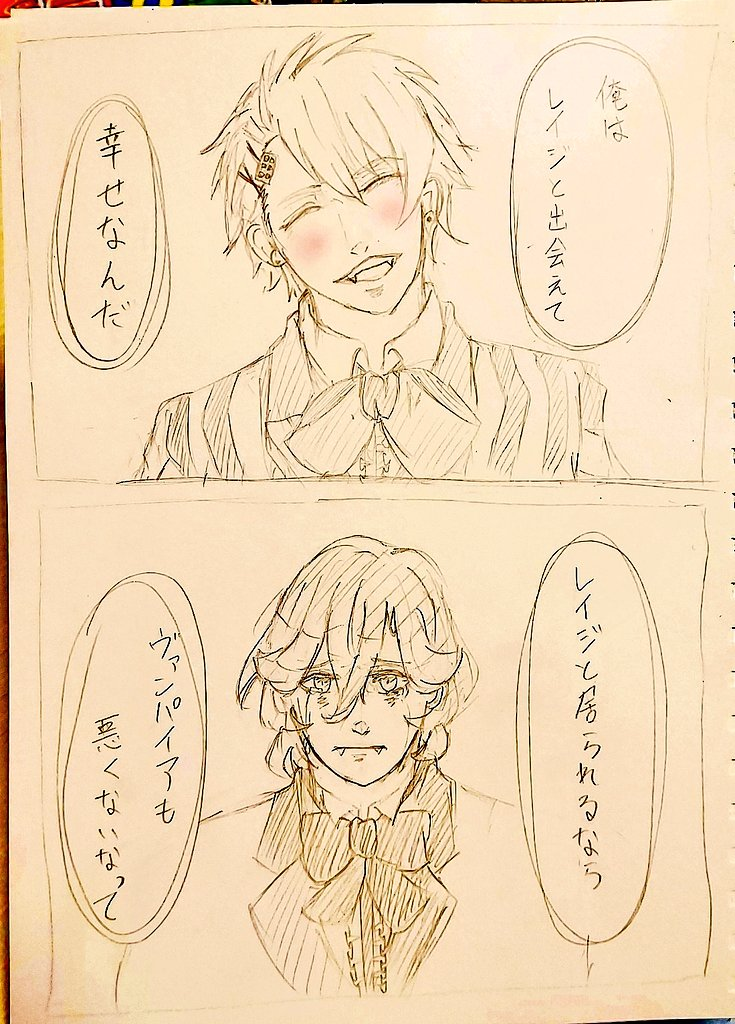 俺は
レイジと出会えて
幸せなんだ
レイジと居られるなら
ヴァンパイアも
悪くないなって